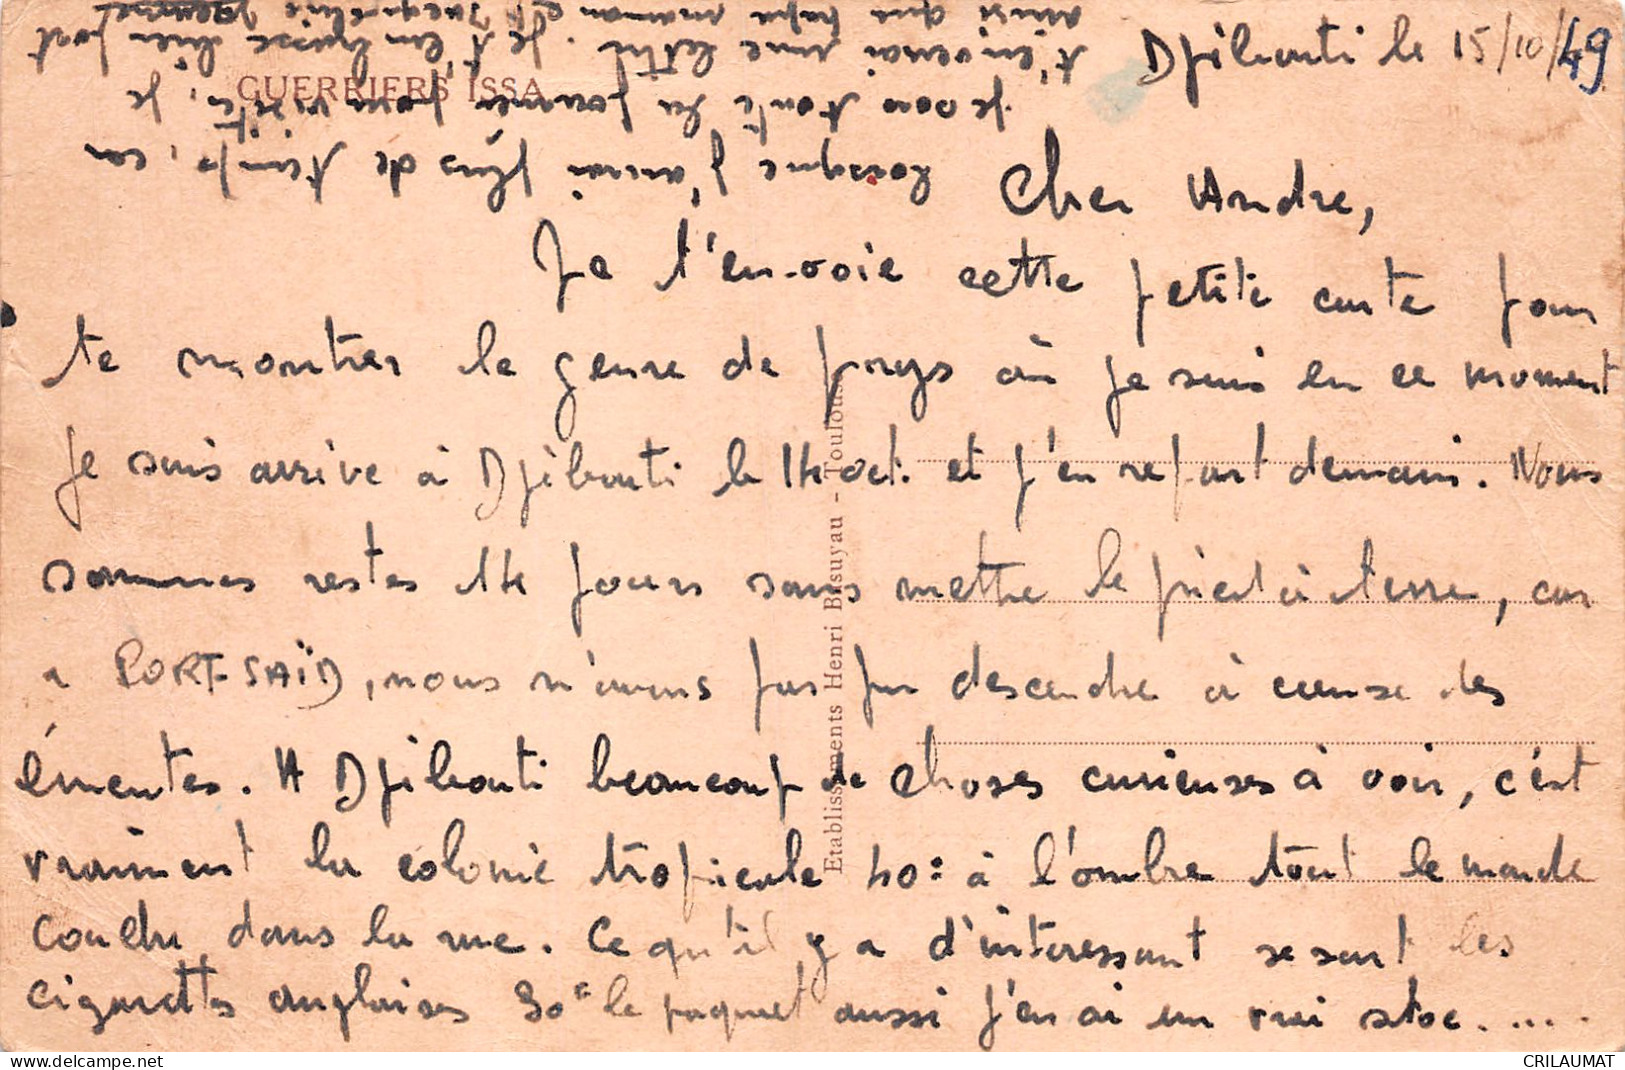 Djibouti le 15/10/49
Cher Andre,
Je t'envoie cette petite carte pour
te montrer le genre de pays où je suis en ce moment
je suis arrive à Djibouti le 14 oct. et j'en repart demain. Nous
sommes restes 14 jours sans mettre le pied à terre, car
a PORT-SAÏD, nous n'avons pas pu descendre à cause des
émeutes. A Djibouti beaucoup de choses curieuses à voir, c'est
vraiment la colonie tropicale 40° à l'ombre tout le monde
couche dans la rue. Ce qu'il y a d'interessant se sont les
cigarettes anglaises 30 le paquet aussi j'en ai un vrai stoc.....
lorsque j'aurai plus de temps, car
je suis toute la journée pour visiter, je
t'enverrai une lettre. Je t'embrasse bien fort
ainsi que papa maman et Jacqueline
GUERRIERS ISSA
Etablissements Henri Basuyau - Toulouse
CRILAUMAT